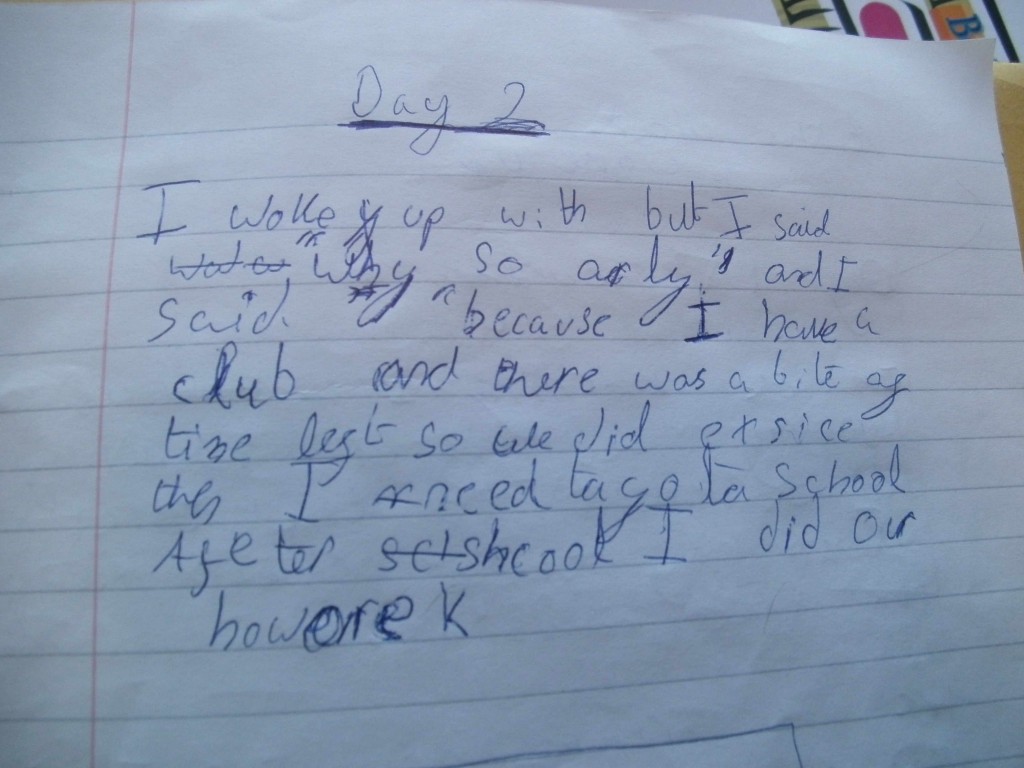 Day 2
I woke up with but I said
"why so arly" and I
said "because I have a
club and there was a bite of
time left so we did exsice
then I need to go to school
After shcool I did our
howorek
B